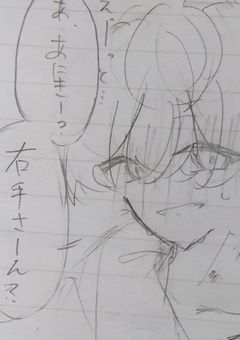 スーっと…
あ、あにきーっ?
右手さーん?